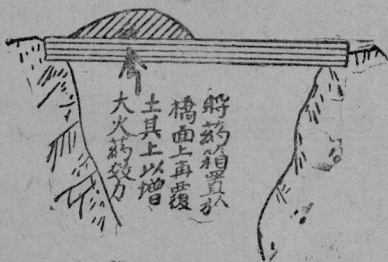 將葯箱置於
橋面上再覆
土其上以增
大火葯效力